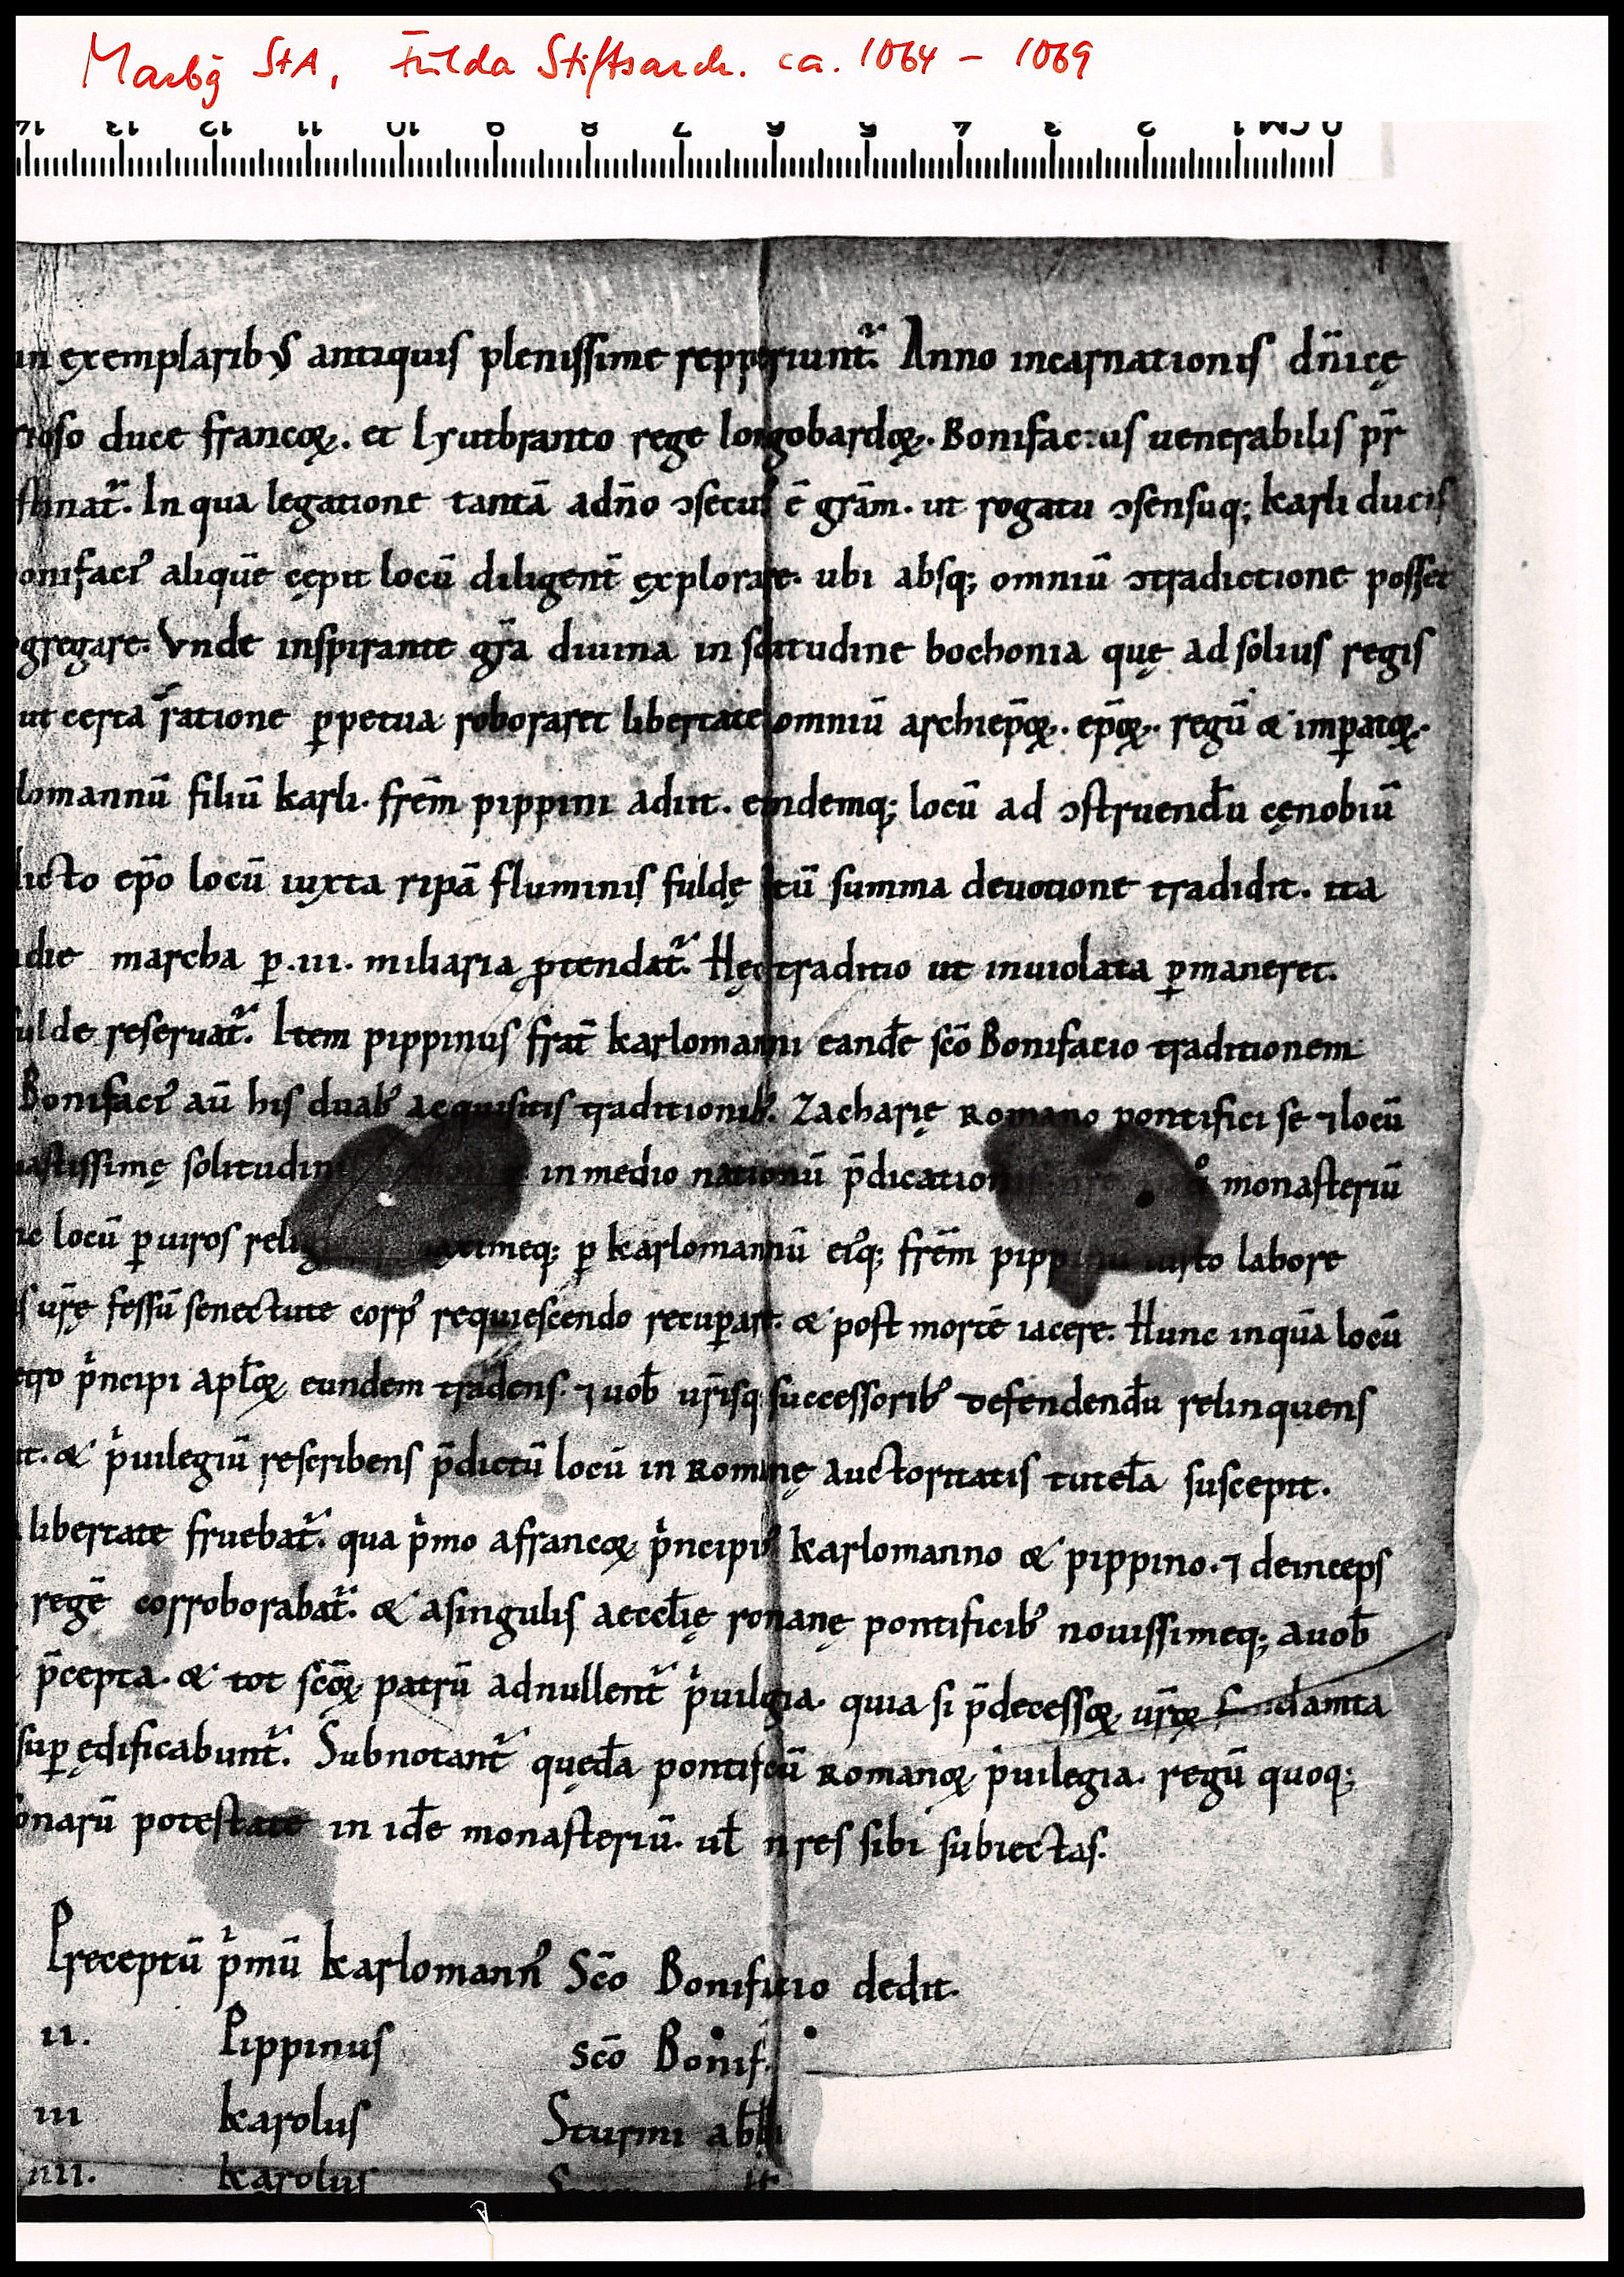 Marbg StA, Fulda Stiftsarch. ca. 1064 – 1069
14 13 12 11 10 9 8 7 6 5 4 3 2 1 CM 0
in exemplarib; antiquis plenissime repperiunt᷑. Anno incarnationis dn̄icę
duce francoꝝ. et Lyutbranto rege longobardoꝝ. Bonifacius uenerabilis pr̄
In qua legatione tantā adn̄o ↄsecutus ē grām. ut rogatu ↄsensuq; karli ducis
onifaciꝰ aliquē cępit locū diligent̄ explorare. ubi absq; omniū ↄtradictione posset
gregare. Vnde inspirante gr̄a diuina in solitudine bochonia quę ad solius regis
ut certa ratione ꝑpetua roboraret libertate omniū archiep̄oꝝ. ep̄oꝝ. regū & imꝑatoꝝ.
lomannū filiū karli. frēm pippini adiit. eundemq; locū ad ↄstruendū cęnobiū
dicto ep̄o locū iuxta ripā fluminis fuldę situ summa deuotione tradidit. ita
die marcha ꝑ .iii. miliaria ꝓtendat᷑. Hęc traditio ut inuiolata ꝑmaneret.
fulde reseruat᷑. Item pippinus frat̄ karlomanni eandē scō Bonifacio traditionem
Bonifaciꝰ aū his duabꝰ acquisitis traditionibꝰ. Zacharię Romano pontifici se ⁊ locū
uastissimę solitudin in medio nationū p̄dication monasteriū
locū ꝑ uiros relig ximeq; ꝑ karlomannū eiꝰq; frēm pipp iusto labore
ur̄ę fessū senectute corpꝰ requiescendo recuꝑare. & post mortē iacere. Hunc inquā locū
pͥncipi apl̄oꝝ eundem tradens. ⁊ uob̄ ur̄isq successoribꝰ defendendū relinquens
it. & pͥuilegiū rescribens p̄dictū locū in Romanę auctoritatis tutelā suscepit.
libertate fruebat᷑. qua pͥmo a francoꝝ pͥncipibꝰ karlomanno & pippino. ⁊ deinceps
regē corroborabat᷑. & a singulis aeccl̄ię romanę pontificibꝰ nouissimeq; a uob̄
p̄cepta. & tot scōꝝ patrū adnullent᷑ pͥuilegia. quia si p̄decessoꝝ ur̄oꝝ fundamta
suꝑ ędificabunt᷑. Subnotant᷑ quędā pontificū Romanoꝝ pͥuilegia. regū quoq;
onarū potestate in idē monasteriū. ul̄ in res sibi subiectas.
Preceptū pͥmū karlomannꝰ Scō Bonifacio dedit.
ii. Pippinus scō Bonif.
iii karolus Sturmi abb̄i
iiii. karolus